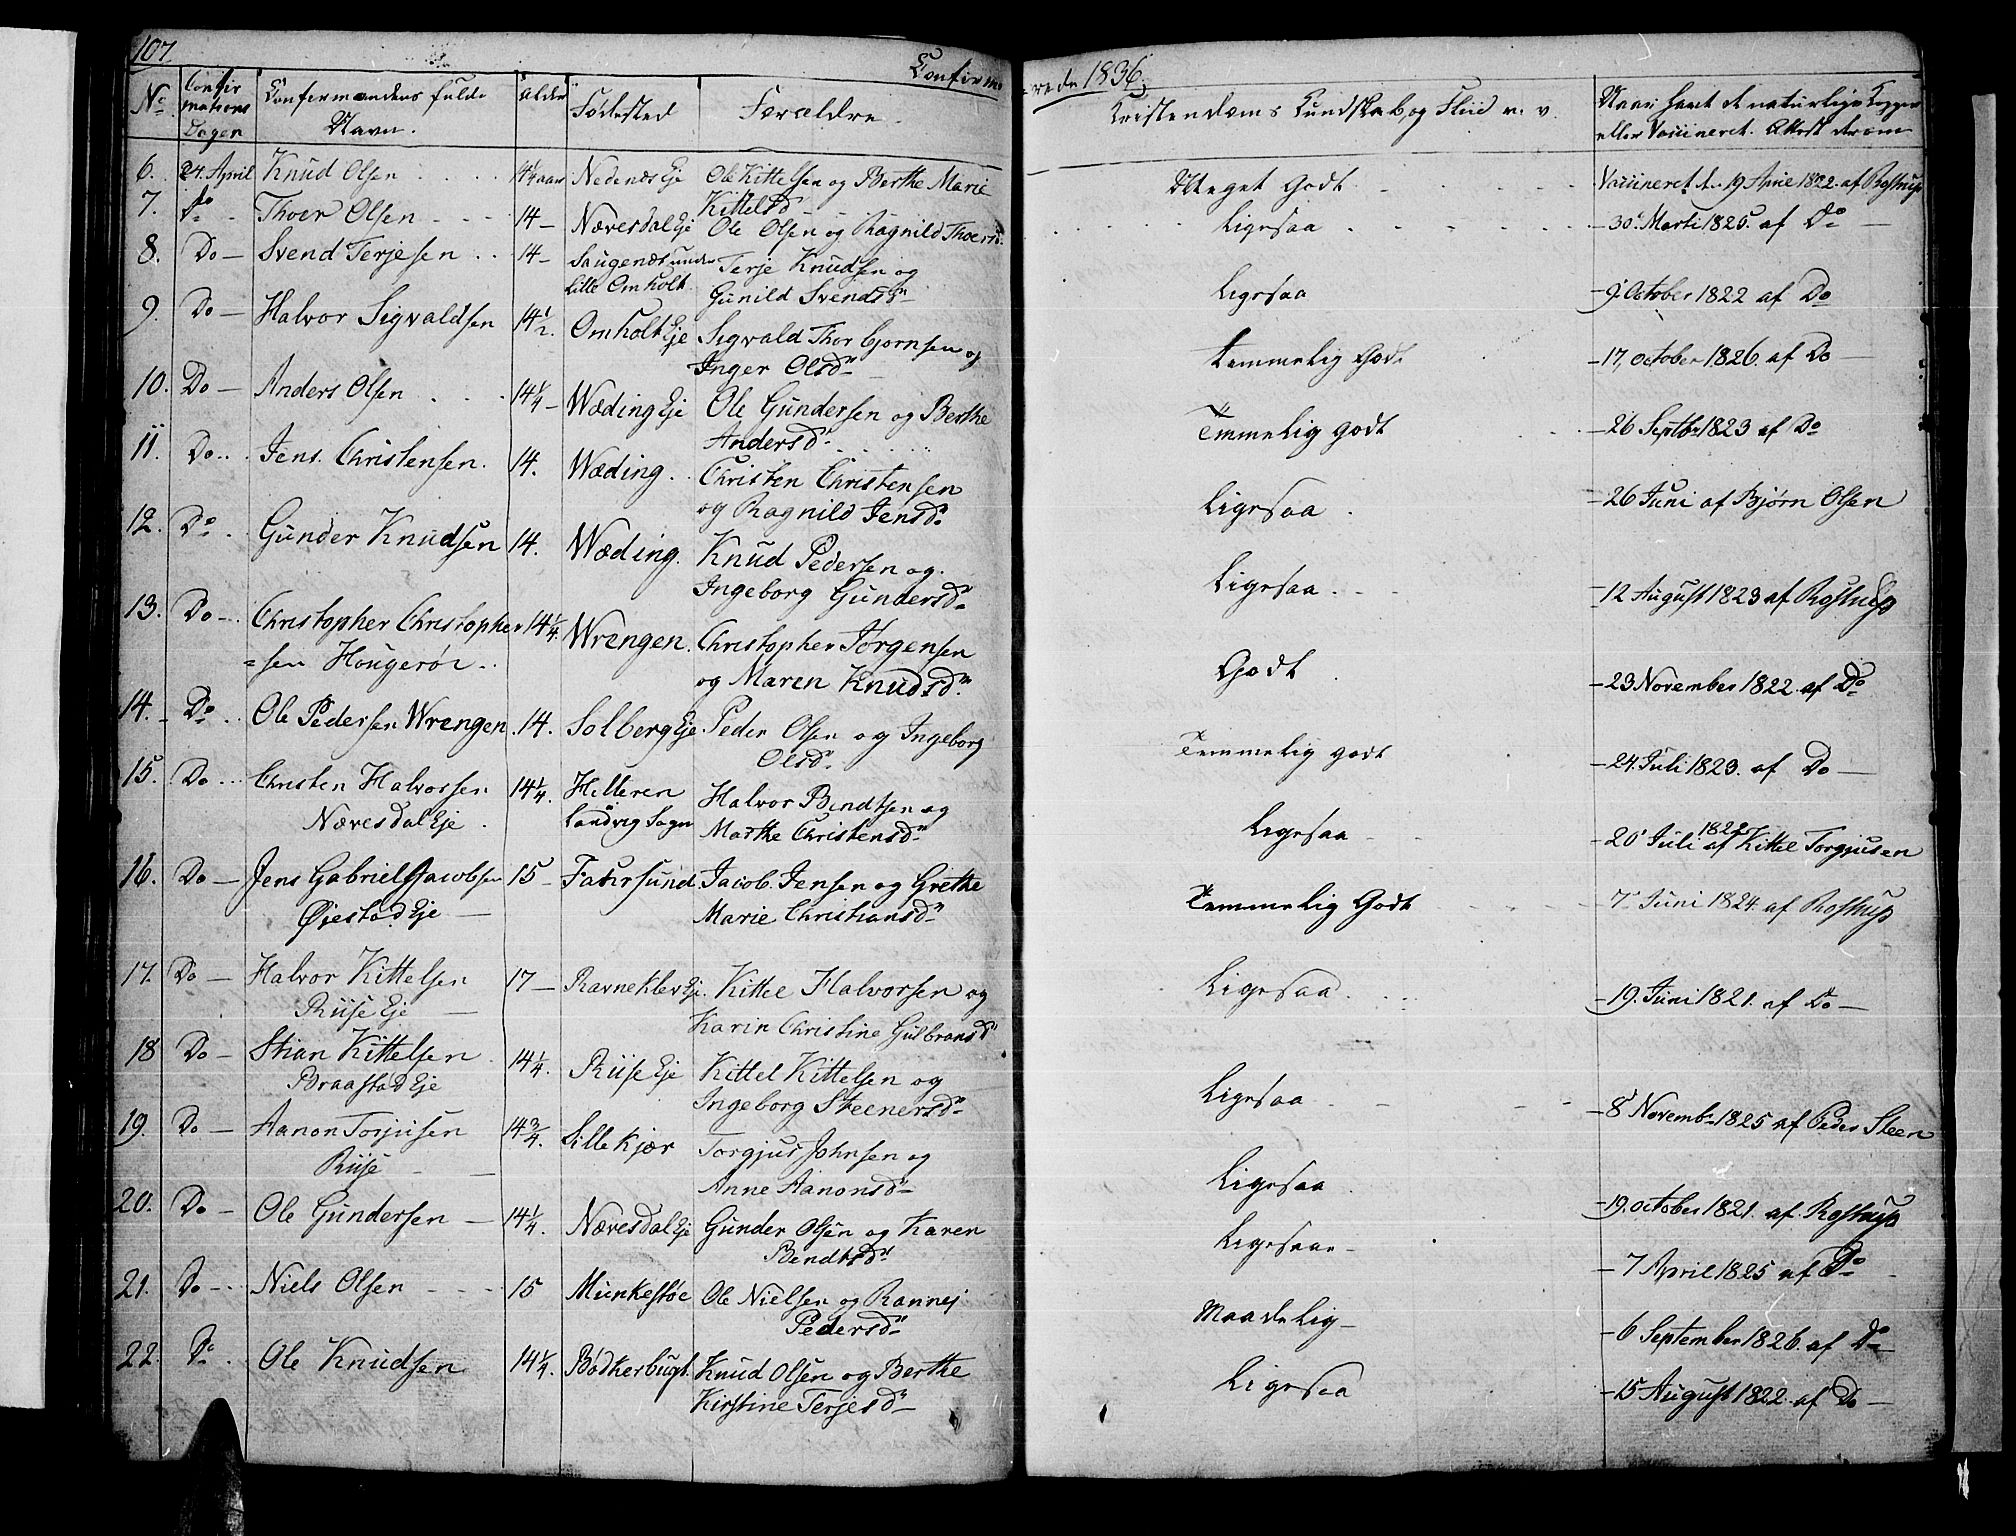 107.
Confirme-
rede 1836.
No. Confirmations Dagen Confirmandens fulde Navn. Alder Fødested Forældre. Cristendoms Kundskab, og Fliid m. v. Naar havt de naturlige Kopper eller Vacineret. Attest derom
6. 24. April Knud Olsen 14¼ aar Nedenæs Eje Ole Kittelsen og Berthe Marie Kittelsd. Meget Godt Vacineret d. 19 April 1822. af Rostrup
7. Do Thoer Olsen 14 – Nævesdal Eje Ole Olsen og Ragnild Thoersd. Ligesaa – 30 Marti 1825. af Do –
8. Do – Svend Terjesen 14 – Saugenæs under Lille Omholt. Terje Knudsen og Gunild Svendsd. Ligesaa – 9. October 1822 af Do
9. Do – Halvor Sigvaldsen 14½. Omholt Eje Sigvald Thorbjornsen og Inger Olsd. temmelig Godt – 17, october 1826. af Do –
10. Do – Anders Olsen 14¼ – Wæding Eje Ole Gundersen og Berthe Andersd. Temmelig godt – 26 Septbr 1823 af Do
11. Do Jens Christensen. 14. Wæding. Christen Christensen og Ragnild Jensd. Ligesaa – 26 Juni af Bjørn Olsen
12. Do Gunder Knudsen 14. Wæding. Knud Pedersen og Ingeborg Gundersd. Ligesaa. – 12 August 1823 af Rostrup
13. Do – Christopher Christopher =sen Hougerør. 14¼. Wrengen. Christopher Jörgensen og Maren Knudsd. Godt – 23 November 1822. af Do
14. Do Ole Pedersen Wrengen. 14. Solberg Eje Peder Olsen og Ingeborg Olsd. Temmelig godt – 24. Juli 1823. af Do –
15. Do Christen Halvorsen Nævesdal Eje. 14¼. Helleren Landvig Sogn Halvor Bendtsen og Marthe Christensd. Ligesaa – 20 Juli 1822 af Kittel Torgjusen
16. Do – Jens Gabriel Jacobsen Øiestad Eje – 15 – Faursund Jacob Jensen og Grethe Marie Christiansd. Temmelig Godt – 7 Juni 1824. af Rostrup
17. Do – Halvor Kittelsen Riise Eje – 17 – Ravneklev Eje. Kittel Halvorsen og Karin Christine Gulbransd. Ligesaa. – 19. Juni 1821. af Do –
18 Do – Stian Kittelsen Braastad Eje 14¼. Riise Eje Kittel Kittelsen og Ingeborg Steenersd. Ligesaa – 8 Novembr 1825 af Peder Steen
19. Do – Aanon Torjusen Riise – 14¾. Lille Kjær Torgjus Johnsen og Anne Aanonsd. Ligesaa – 19. october 1821. af Rostrup
20. Do – Ole Gundersen – 14¼. Nævesdal Eje Gunder Olsen og Karen Bendtsd. Ligesaa – – 7 April 1825 af Do
21. Do – Niels Olsen 15 Munkestøe Ole Nielsen og Rannej Pedersd. Maadelig – – 6 September 1826. af Do
22. Do Ole Knudsen 14¼. Bödkerbugt. Knud Olsen og Berthe Kirstine Terjesd. Ligesaa – 15 August 1822. af Do –